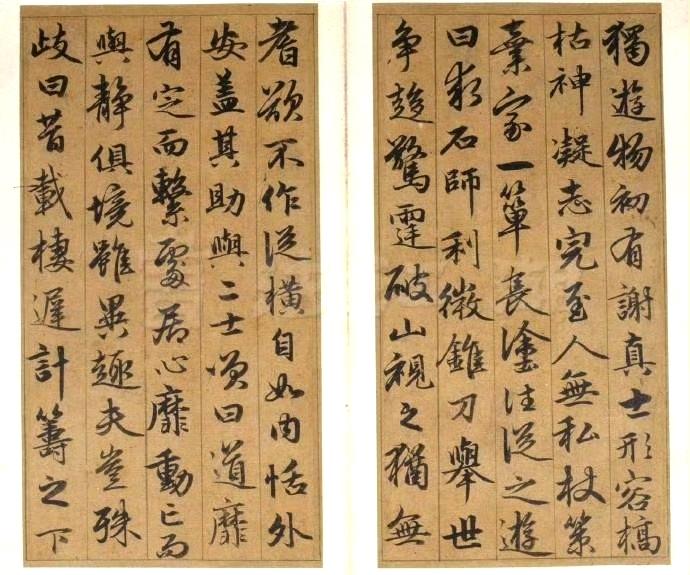 獨遊物初有謝真士形容槁
枯神凝志完至人無私杖策
棄家一簞長塗往從之遊
曰求石師利徵錐刀舉世
争趨驚霆破山視之猶無
耆欲不作從橫自如内恬外
安蓋其助與二士頌曰道靡
有定而繫處居心靡動亡而
與静俱境雖異趣夫豈殊
歧曰昔載棲遲計籌之下